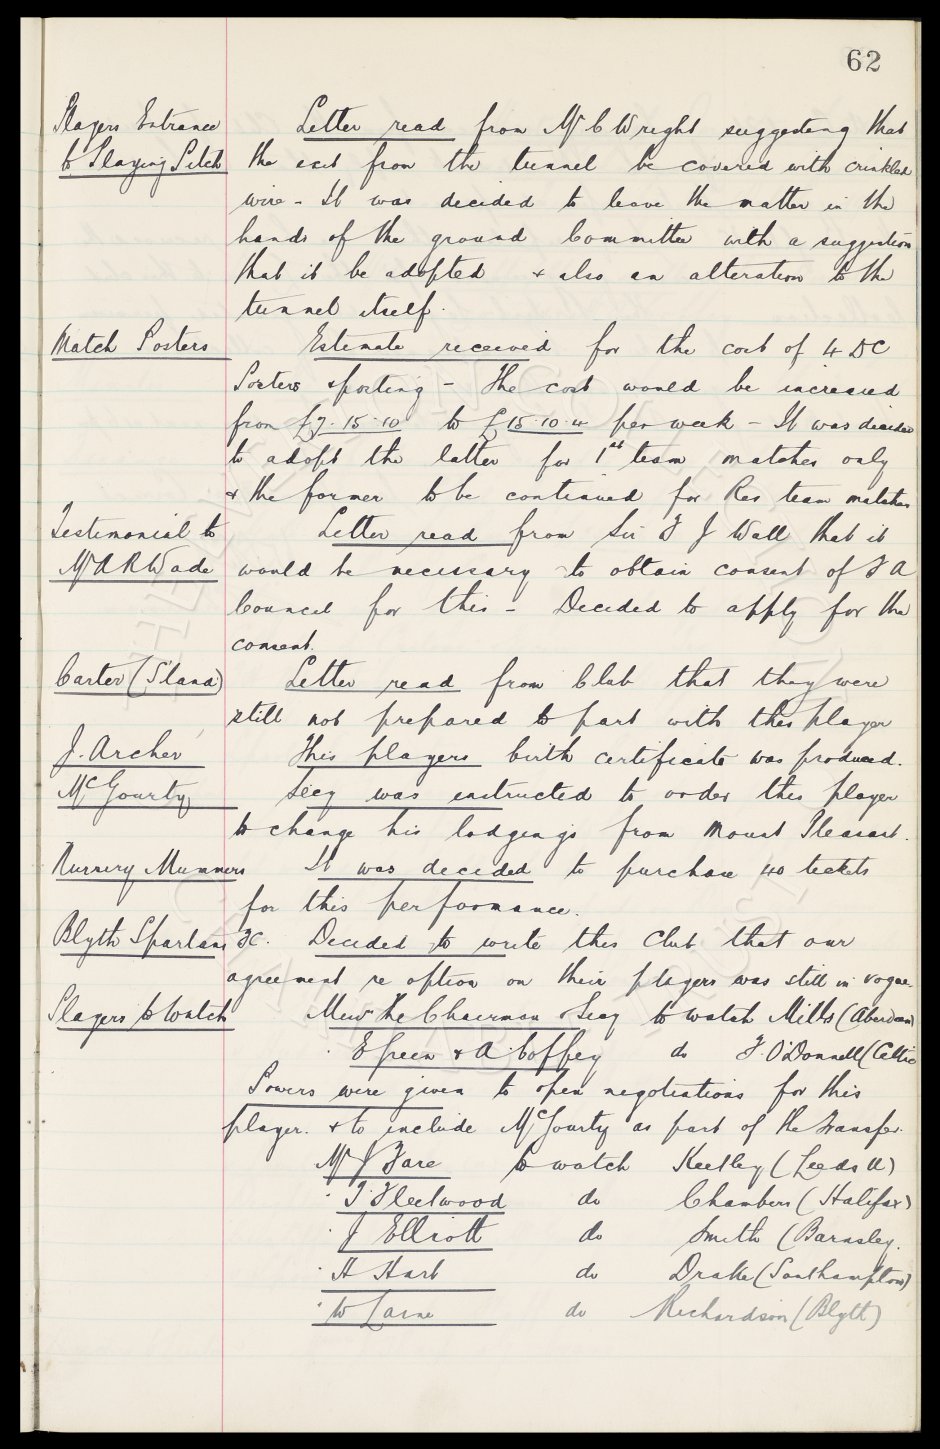 62
Players Entrance Letter read from Mr C Wright suggesting that
to Playing Pitch the exit from the tunnel be covered with crinkled
wire - It was decided to leave the matter in the
hands of the ground Committee with a suggestion
that it be adopted & also an alteration to the
tunnel itself.
Match Posters Estimate received for the cost of 4 DC
Posters & posting - The cost would be increased
from £7.15.10 to £15.10.4 per week - It was decided
to adopt the latter for 1st team matches only
& the former to be continued for Res team matches
Testimonial to Letter read from Sir F J Wall that it
Mr A R Wade would be necessary to obtain consent of F A
Council for this - Decided to apply for the
consent.
Carter (Stand) Letter read from Club that they were
still not prepared to part with this player
J. Archer This players birth certificate was produced.
McGourty Secy was instructed to order this player
to change his lodgings from Mount Pleasant.
Nursery Mummers It was decided to purchase 40 tickets
for this performance.
Blyth Spartans FC. Decided to write this Club that our
agreement re option on their players was still in vogue.
Players to Watch The Chairman & Secy to watch Mills (Aberdeen)
E Green & A. Coffey do F. O'Donnell (Celtic
Powers were given to open negotiations for this
player. & to include McGourty as part of the transfer.
Mr J Fare to watch Keetley (Leeds U)
" T. Fleetwood do Chambers (Halifax)
" J Elliott do Smith (Barnsley.
" H Hart do Drake (Southampton)
" W Larne do Richardson (Blyth)